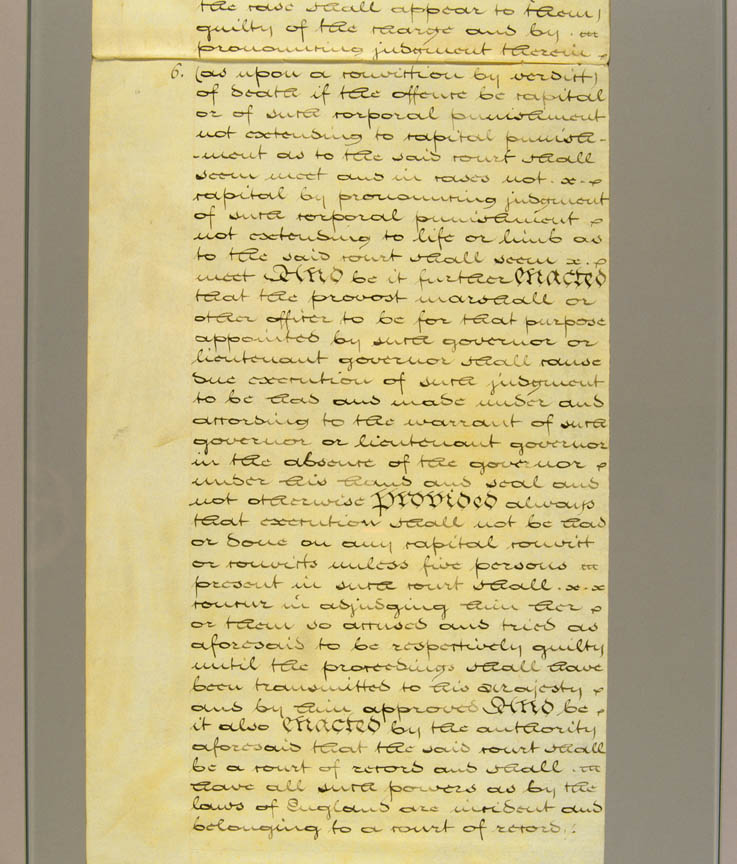 the case shall appear to them)
guilty of the charge and by
pronouncing judgment therein
6. (as upon a conviction by verdict)
of death if the offence be capital
or of such corporal punishment
not extending to capital punish-
-ment as to the said court shall
seem meet and in cases not
capital by pronouncing judgment
of such corporal punishment
not extending to life or limb as
to the said court shall seem
meet And be it further enacted
that the provost marshall or
other officer to be for that purpose
appointed by such governor or
lieutenant governor shall cause
due execution of such judgment
to be had and made under and
according to the warrant of such
governor or lieutenant governor
in the absence of the governor
under his hand and seal and
not otherwise Provided always
that execution shall not be had
or done on any capital convict
or convicts unless five persons
present in such court shall
concur in adjudging him her
or them so accused and tried as
aforesaid to be respectively guilty
until the proceedings shall have
been transmitted to his Majesty
and by him approved And be
it also enacted by the authority
aforesaid that the said court shall
be a court of record and shall
have all such powers as by the
laws of England are incident and
belonging to a court of record.